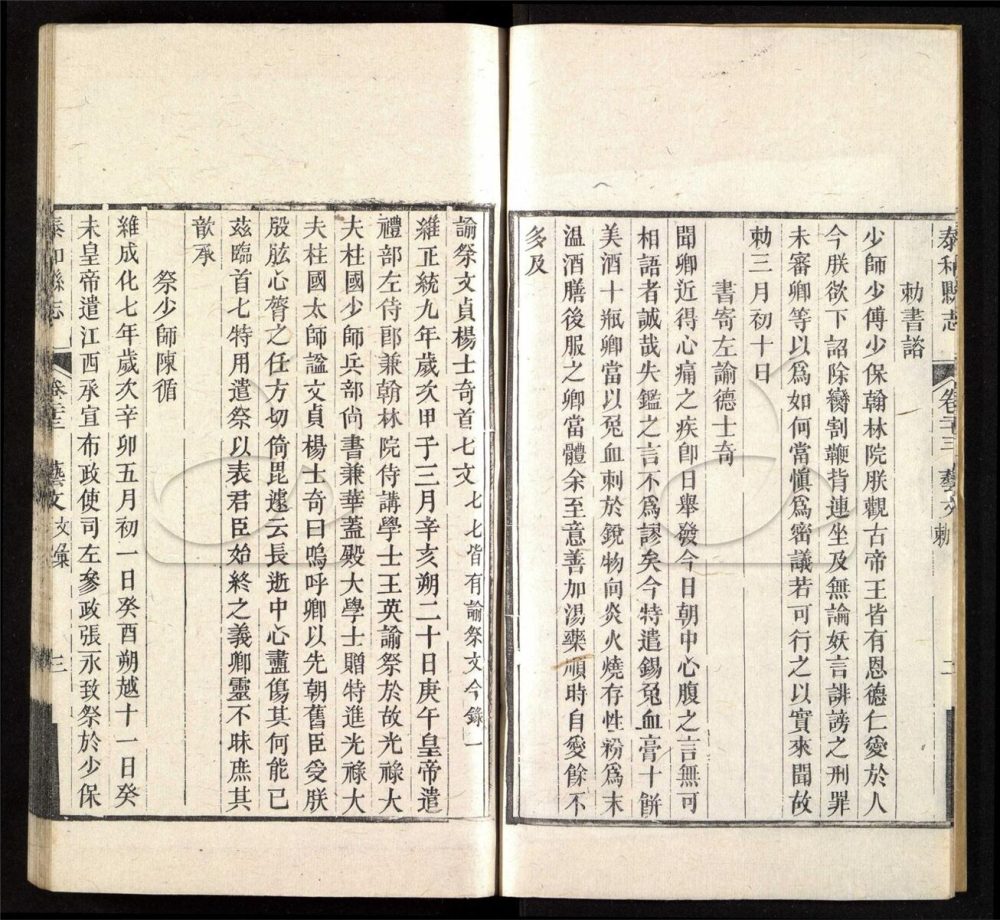 泰和縣志 卷二十三 藝文 勅 二
勅書諮
少師少傅少保翰林院朕觀古帝王皆有恩德仁愛於人
今朕欲下詔除臠割鞭背連坐及無論妖言誹謗之刑罪
未審卿等以爲如何當愼爲密議若可行之以實來聞故
勅三月初十日
書寄左諭德士奇
聞卿近得心痛之疾卽日舉發今日朝中心腹之言無可
相語者誠哉失鑑之言不爲謬矣今特遣錫兔血膏十餅
美酒十瓶卿當以兔血刺於銳物向炎火燒存性粉爲末
溫酒膳後服之卿當體余至意善加湯藥順時自愛餘不
多及
諭祭文貞楊士奇首七文七七皆有諭祭文今錄一
維正統九年歲次甲子三月辛亥朔二十日庚午皇帝遣
禮部左侍郎兼翰林院侍講學士王英諭祭於故光祿大
夫柱國少師兵部尙書兼華蓋殿大學士贈特進光祿大
夫柱國太師諡文貞楊士奇曰嗚呼卿以先朝舊臣受朕
股肱心膂之任方切倚毘遽云長逝中心盡傷其何能已
茲臨首七特用遣祭以表君臣始終之義卿靈不昧庶其
歆承
祭少師陳循
維成化七年歲次辛卯五月初一日癸酉朔越十一日癸
未皇帝遣江西承宣布政使司左參政張永致祭於少保
泰和縣志 卷二十三 藝文 文彙 三